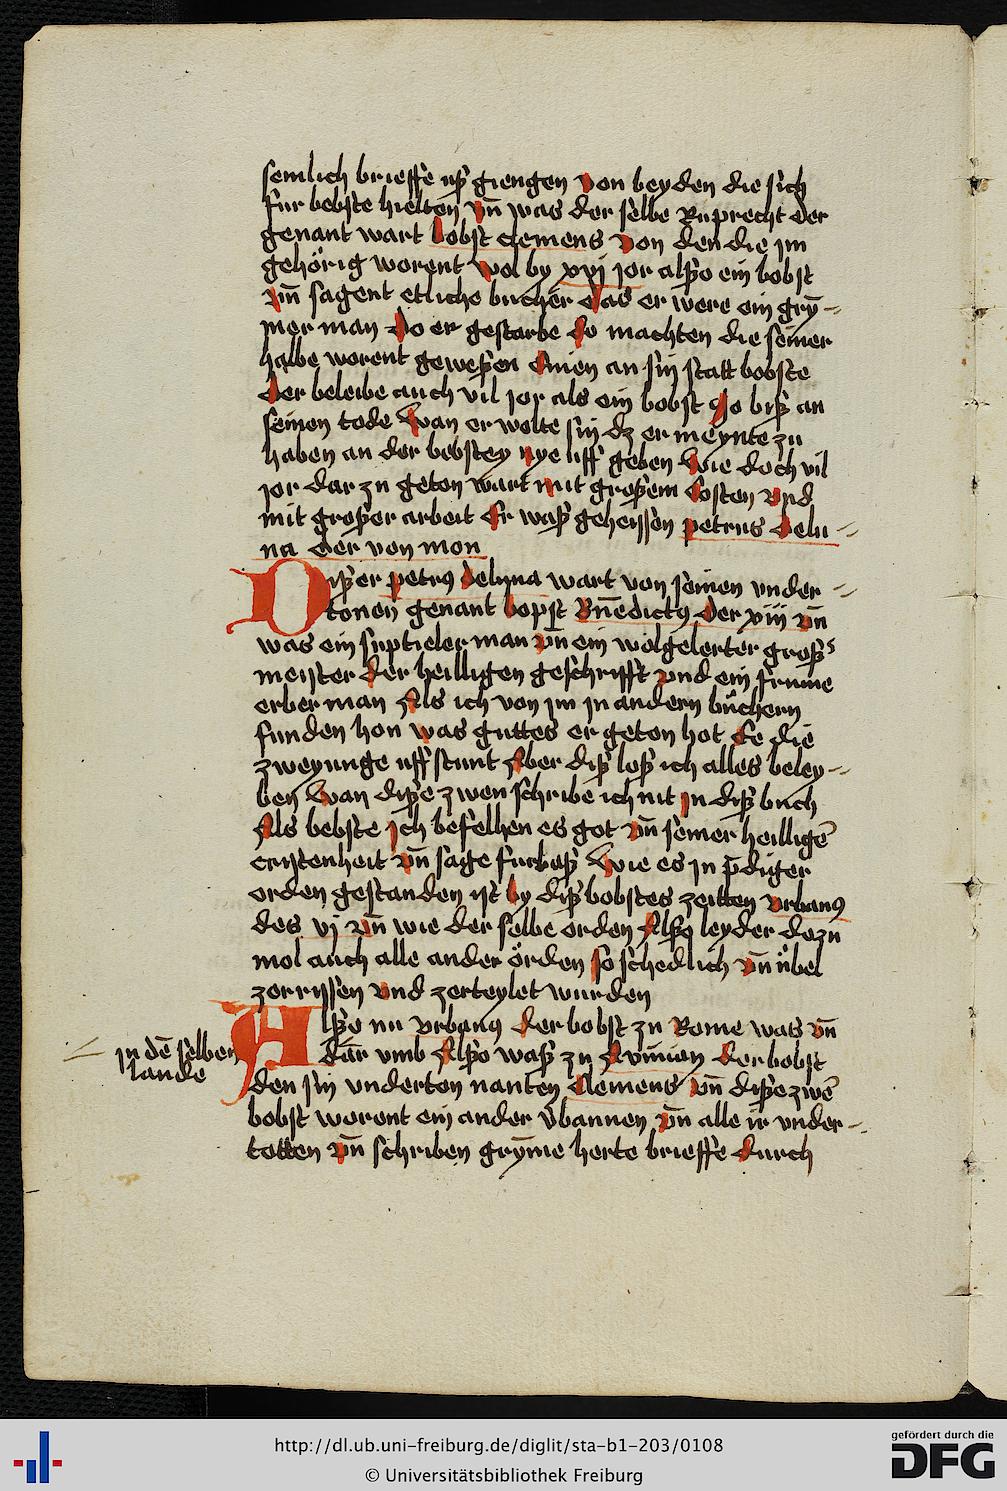 semlich brieffe uß giengen von beyden die sich
fur bebste hielten vn̄ was der selbe Ruprecht der
genant wart bobst clemens von den die jm
gehörig worent wol by xvj jor alßo ein bobst
vn̄ sagent etliche bucher das er were ein gry̅-
mer man Do er gestarbe do machten die seiner
halbe worent geweßen einen an sin statt bobste
Der beleibe auch vil jor als ein bobst jo biß an
seinen tode wan er wolte sin dz er meynte zu
haben an der bebstey nye uff geben wie doch vil
jor dar zu geton wart mit großem costen vnd
mit großer arbeit Er waß geheissen petrus delu-
na der von mon
Dißer petrꝯ deluna wart von seinen vnder-
tonen genant bopst Bn̄edictꝯ der xiii vn̄
was ein suptieler man vn̄ ein wolgelerter groß
meister der heilligen geschrifft vnd ein frume
erber man Als ich von jm jn andern bůchern
funden hon was guttes er geton hot Ee die
zweyunge uff stunt Aber diß loß ich alles beley-
ben wan diße zwen schribe ich nit jn diß buch
Als bebste jch befelhen es got vn̄ seiner heilligē
cristenheit vn̄ sage furbaß wie es jn p̄diger
orden gestanden ist by diß bobstes zeitten vrbanꝯ
des vj vn̄ wie der selbe orden Alßo leyder dozu
mol auch alle ander örden so schedlich vn̄ übel
zerrissen vnd zerteylet wurden
Alßo nu vrbanꝯ der bobst zu Rome was vn̄
in dē selben
lande
dar vmb Alßo waß zu Avinion der bobst
den sin vnderton nanten Clemens vn̄ diße zwē
bobst worent ein ander v̄bannen vn̄ alle ir vnder-
totten vn̄ schriben gry̅me herte brieffe durch
http://dl.ub.uni-freiburg.de/diglit/sta-b1-203/0108
© Universitätsbibliothek Freiburg
gefördert durch die
DFG